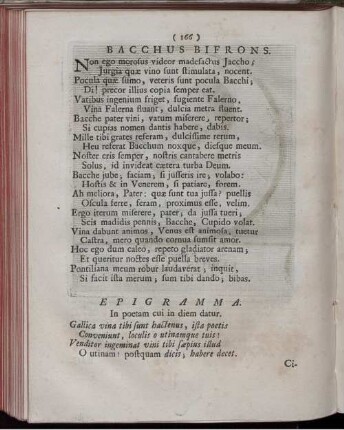 ( 166 )
BACCHUS BIFRONS.
Non ego morosus videor madefactus Jaccho;
Jurgia quæ vino sunt stimulata, nocent.
Pocula quæ sumo, veteris sunt pocula Bacchi,
Di! precor illius copia semper eat.
Vatibus ingenium friget, fugiente Falerno,
Vina Falerna fluant, dulcia metra fluent.
Bacche pater vini, vatum miserere, repertor;
Si cupias nomen dantis habere, dabis.
Mille tibi grates referam, dulcissime rerum,
Heu referat Bacchum noxque, diesque meum.
Noster eris semper, nostris cantabere metris
Solus, id invideat cætera turba Deum.
Bacche jube; faciam; si jusseris ire, volabo:
Hostis & in Venerem, si patiare, forem.
Ah meliora, Pater: quæ sunt tua jussa? puellis
Oscula ferre, feram, proximus esse, velim.
Ergo iterum miserere, pater, da jussa tueri;
Scis madidis pennis, Bacche, Cupido volat.
Vina dabunt animos, Venus est animosa, tuetur
Castra, mero quando cornua sumsit amor.
Hoc ego dum caleo, repeto gladiator arenam;
Et queritur noctes esse puella breves.
Pontiliana meum robur laudaverat; inquit,
Si facit ista merum; sum tibi dando; bibas.
EPIGRAMMA.
In poetam cui in diem datur.
Gallica vina tibi sunt hactenus, ista poetis
Conveniunt, loculis o utinamque tuis:
Venditor ingeminat vini tibi sæpius illud
O utinam: postquam dicis; habere decet.
Ci-